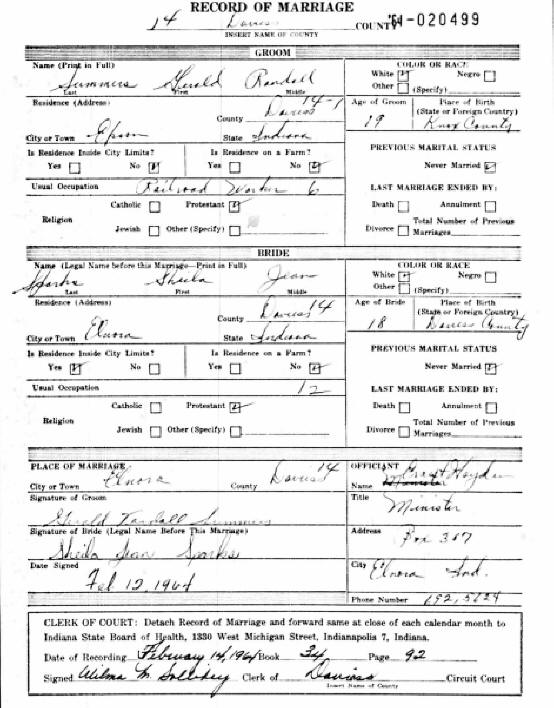 RECORD OF MARRIAGE
14 Daviess COUNTY '64-020499
INSERT NAME OF COUNTY
GROOM
Name (Print in Full)
Summers Gerald Randall
Last First Middle
COLOR OR RACE
White Negro
Other (Specify)
Residence (Address)
County Daviess 14-1
City or Town Epsom State Indiana
Age of Groom Place of Birth
(State or Foreign Country)
19 Knox County
Is Residence Inside City Limits? Is Residence on a Farm?
Yes No Yes No
PREVIOUS MARITAL STATUS
Never Married
Usual Occupation Railroad Worker 6
LAST MARRIAGE ENDED BY:
Religion
Catholic Protestant
Jewish Other (Specify)
Death Annulment
Divorce Total Number of Previous
Marriages
BRIDE
Name (Legal Name before this Marriage—Print in Full)
Sparks Sheila Jean
Last First Middle
COLOR OR RACE
White Negro
Other (Specify)
Residence (Address)
County Daviess 14
City or Town Elnora State Indiana
Age of Bride Place of Birth
(State or Foreign Country)
18 Daviess County
Is Residence Inside City Limits? Is Residence on a Farm?
Yes No Yes No
PREVIOUS MARITAL STATUS
Never Married
Usual Occupation 12
LAST MARRIAGE ENDED BY:
Religion
Catholic Protestant
Jewish Other (Specify)
Death Annulment
Divorce Total Number of Previous
Marriages
PLACE OF MARRIAGE
City or Town Elnora County Daviess 14
Signature of Groom
Gerald Randall Summers
Signature of Bride (Legal Name Before This Marriage)
Sheila Jean Sparks
Date Signed
Feb 12, 1964
OFFICIANT
Name Grant Hayden
Title
Minister
Address
Box 307
City Elnora Ind.
Phone Number 692,5624
CLERK OF COURT: Detach Record of Marriage and forward same at close of each calendar month to
Indiana State Board of Health, 1330 West Michigan Street, Indianapolis 7, Indiana.
Date of Recording February 14, 1964 Book 34 Page 92
Signed Wilma M. Clerk of Daviess Circuit Court
Insert Name of County